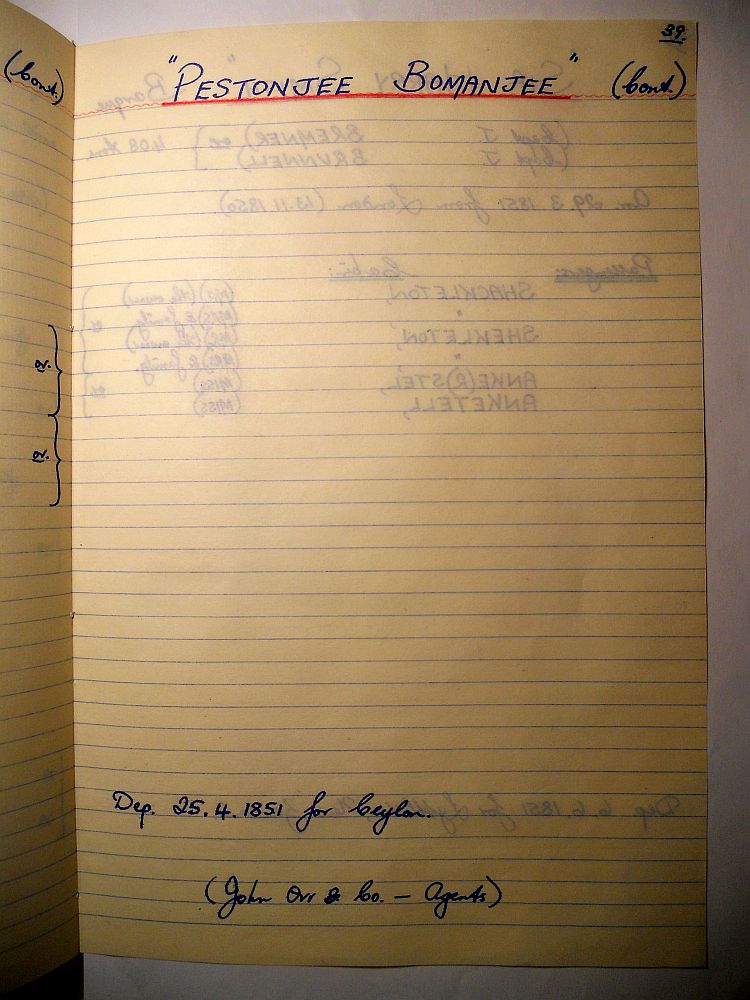 39.
"PESTONJEE BOMANJEE" (Cont.)
Dep. 25.4.1851 for Ceylon.
(John Orr & Co. – Agents)
(Cont.)
or.
or.